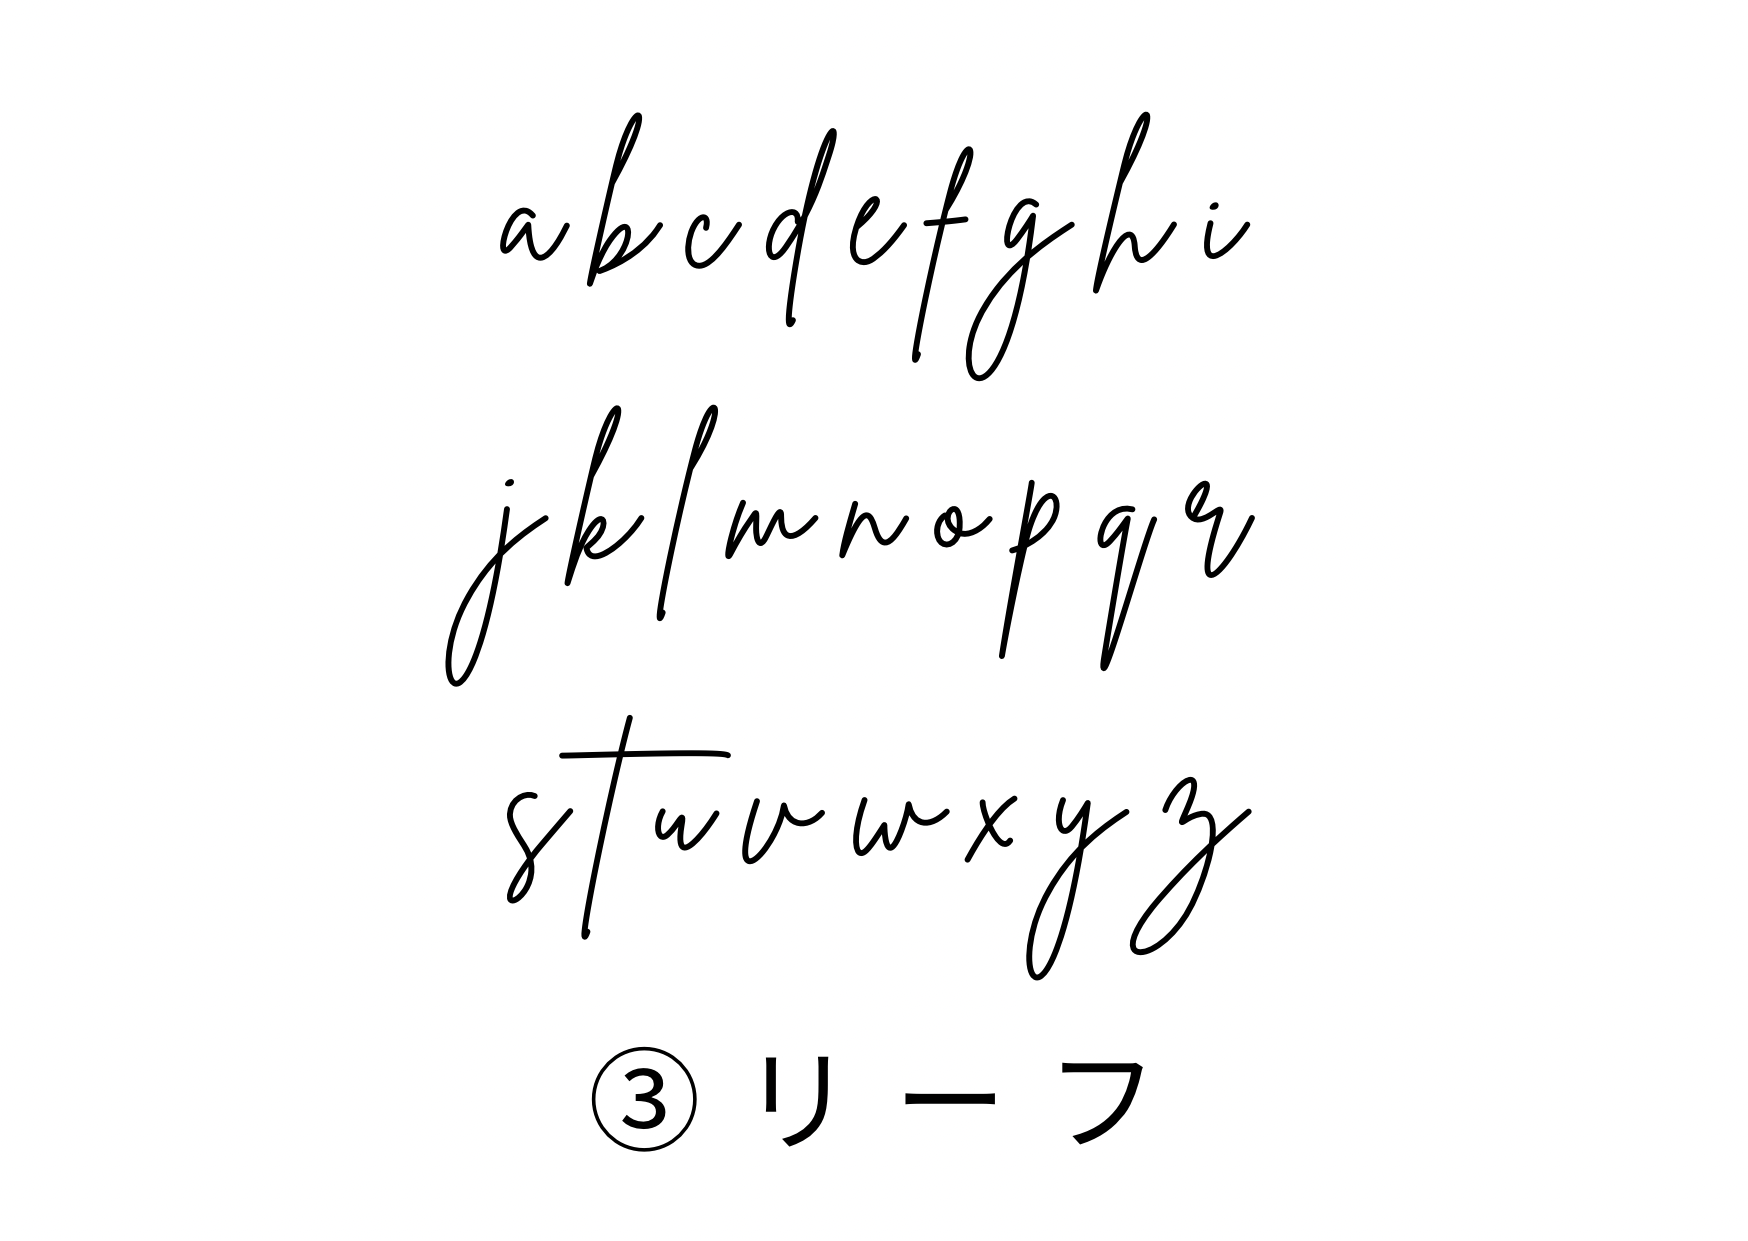 a b c d e f g h i
j k l m n o p q r
s t u v w x y z
③ リーフ